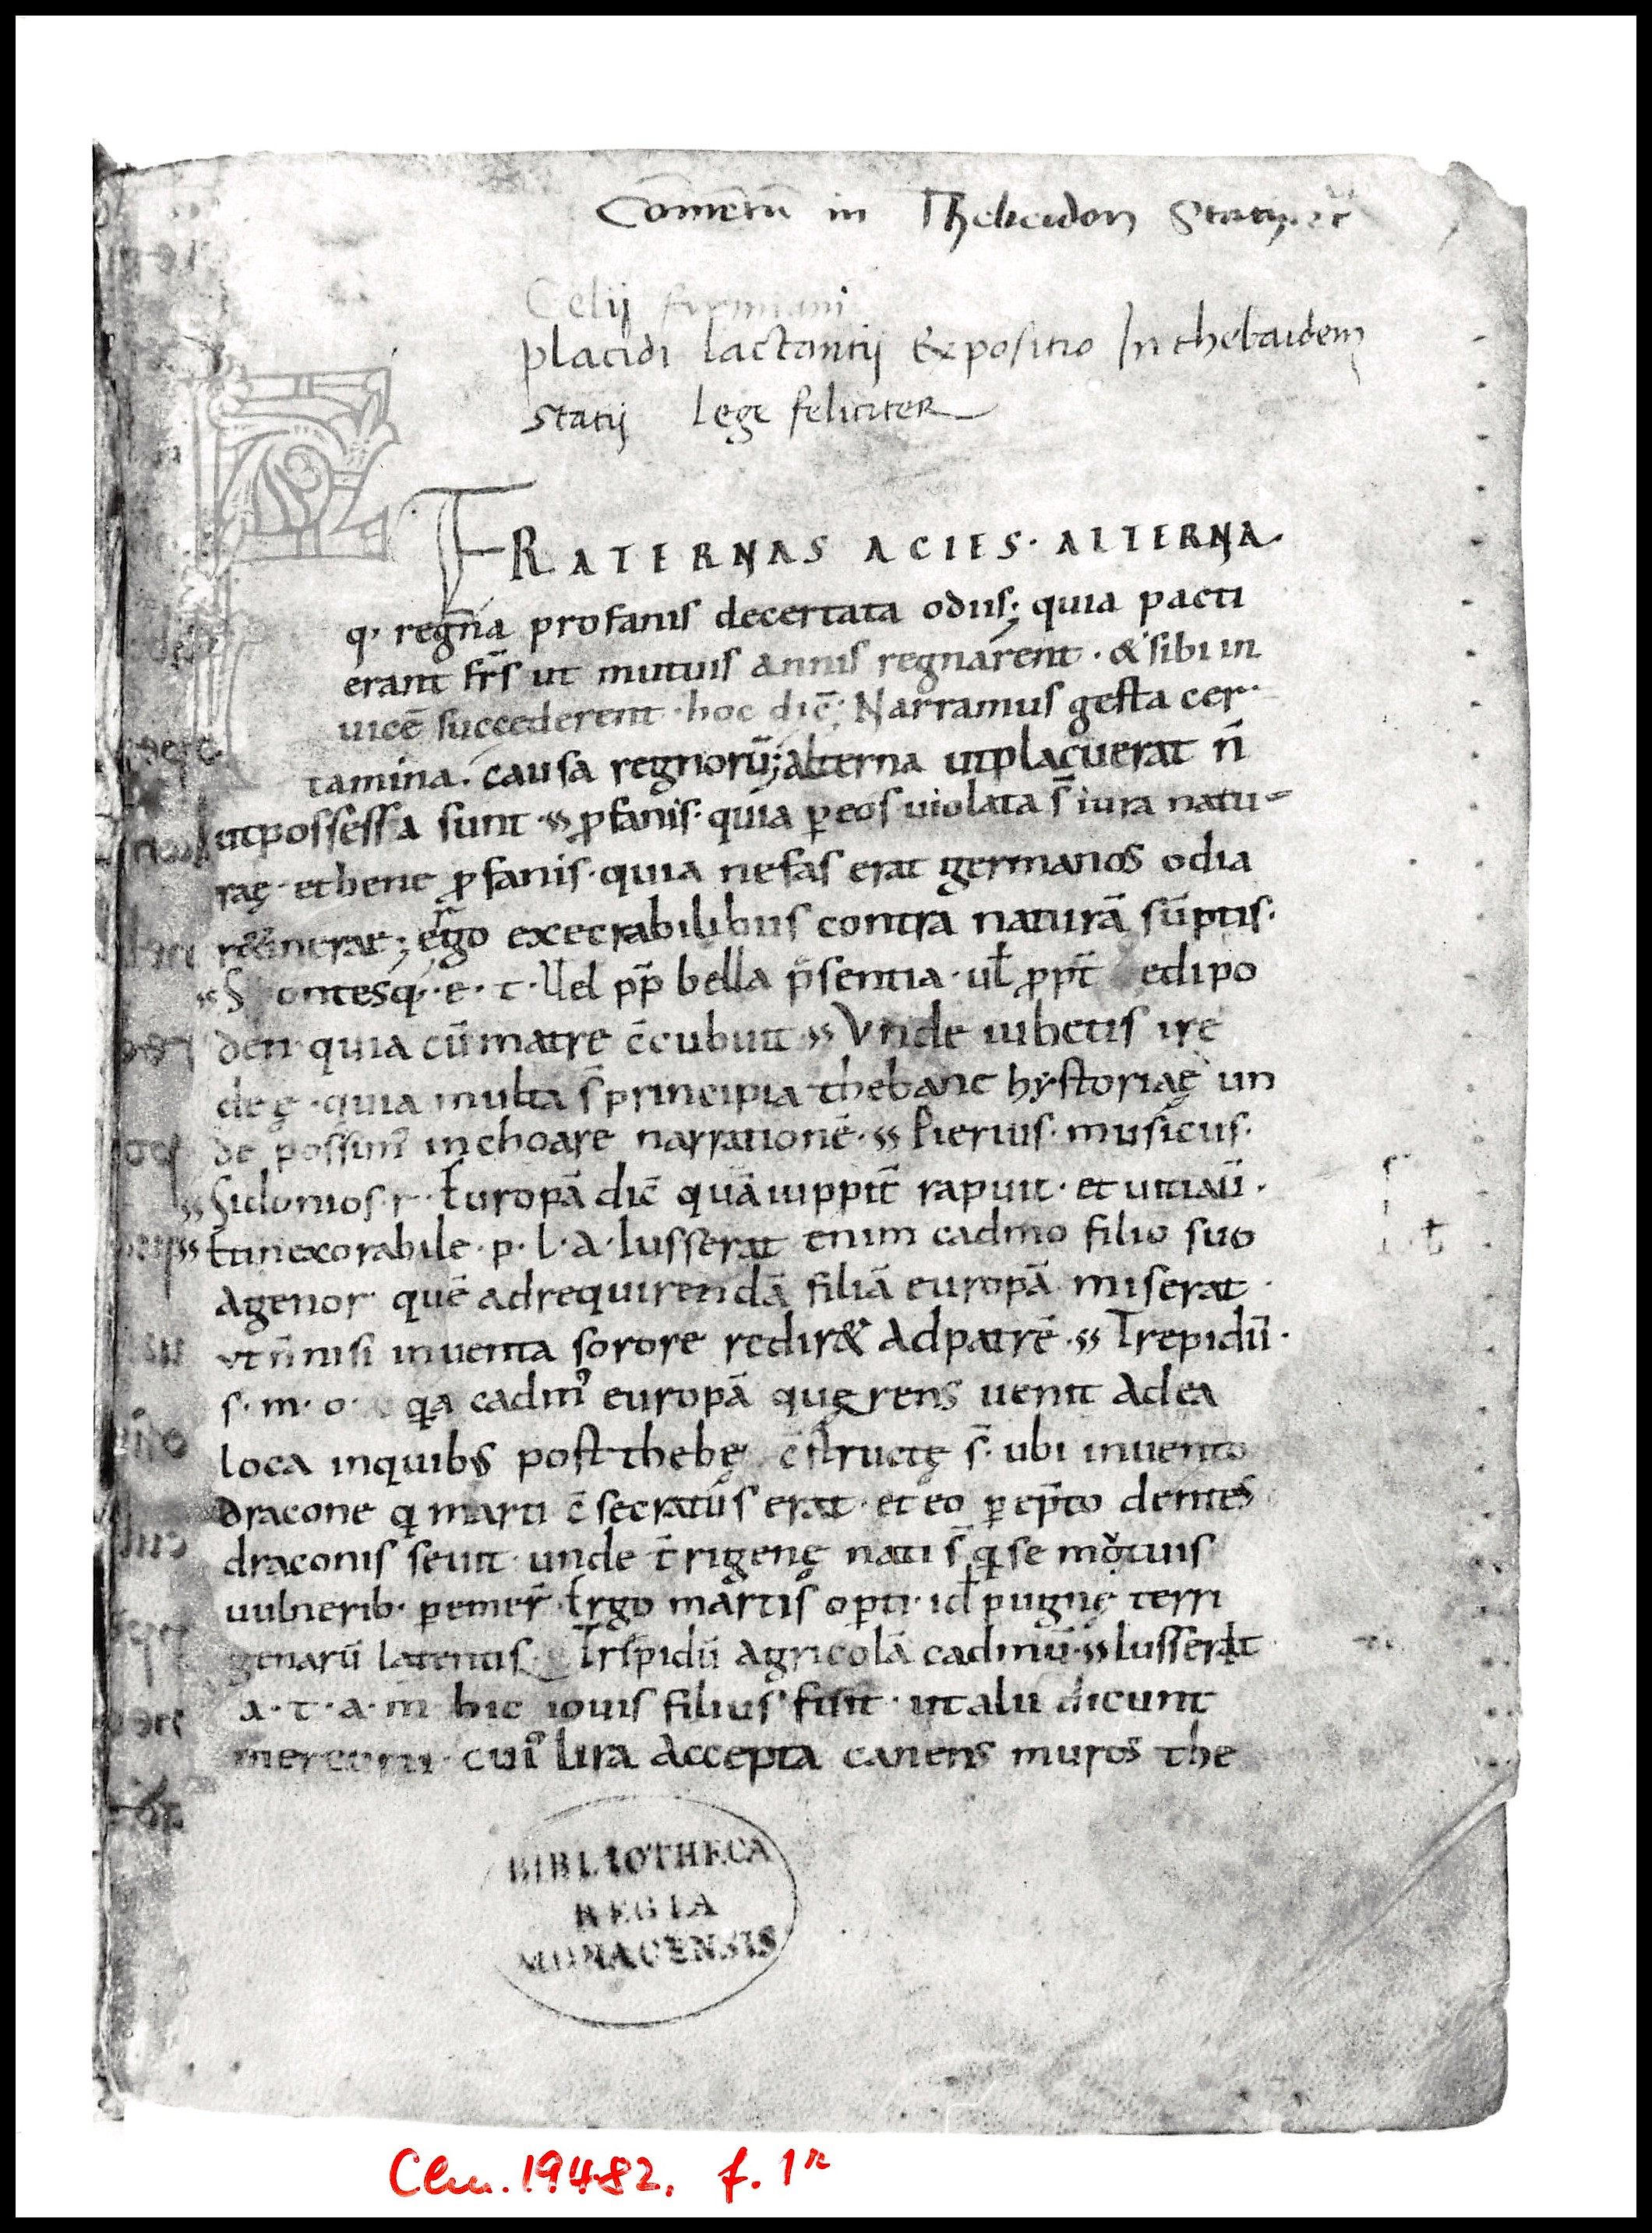 Com̄entū in Thebaidon Statij
Celij firmiani
placidi lactantij Expositio In thebaidem
Statij Lege feliciter
FRATERNAS ACIES· ALTERNA
q· regna profanis decertata odiis; quia pacti
erant fr̄s ut mutuis annis regnarent· & sibi in
uicē succederent· hoc dic̄; Narramus gesta cer·
tamina· causa regnorū; alterna ut placuerat n̄
ut possessa sunt· ꝓfanis· quia ꝑ eos uiolata s̄ iura natu-
rae̜· et bene ꝓfanis· quia nefas erat germanos odia
r&inere; ergo execrabilibus contra naturā sūptis·
S ontesq;· e· t· Uel pp̄ bella p̄sentia· ul̄ ꝓpt̄ edipo
den· quia cū matre c̄cubuit· Vnde iubetis ire
dee̜· quia multa s̄ principia thebane hystoriae̜ un
de possim᾽ inchoare narrationē· Pierius· musicus·
Sidonios· r· Europā dic̄ quā iuppit̄ rapuit· et uitiau̅·
Et inexorabile· p· l· a· Iusserat enim cadmo filio suo
Agenor quē ad requirendā filiā europā miserat·
vt n̄ nisi inuenta sorore redir& ad patrē· Trepidū·
s· m· o· qa cadm᾽ europā que̜rens uenit ad ea
loca in quibus post thebe̜ c̄structe̜ s̄· ubi inuento
dracone qi marti c̄secratus erat· et eo ꝑep̄to dentes
draconis seuit· unde t̄rigene̜ nati s̄ qi se mutuis
uulnerib· ꝑemer̄· Ergo martis oꝑti· id̄ pugne̜ terri
genarū latentis· Trepidū agricolā cadmū· Iusserit
a· t· a· m̄· hic iouis filius fuit· ut alii dicunt
mercurii· cui᾽ lira accepta canens muros the
BIBLIOTHECA
REGIA
MONACENSIS
Clm. 19482, f. 1r